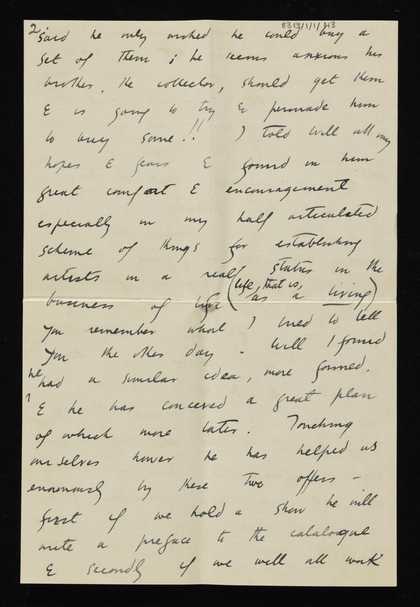 2
8313/1/1/213
said he only wished he could buy a
set of them; he seems anxious his
brother, the collector, should get them
& is going to try & persuade him
to buy some!! I told Will all my
hopes & fears & found in him
great comfort & encouragement
especially in my half articulated
scheme of things for establishing
artists in a real status in the
business of life (life, that is, as a living)
You remember what I tried to tell
you the other day - Will I found
he had a similar idea, more formed.
& he has conceived a great plan
of which more later. Touching
ourselves however he has helped us
enormously by these two offers -
first if we hold a show he will
write a preface to the catalogue
& secondly if we will all work